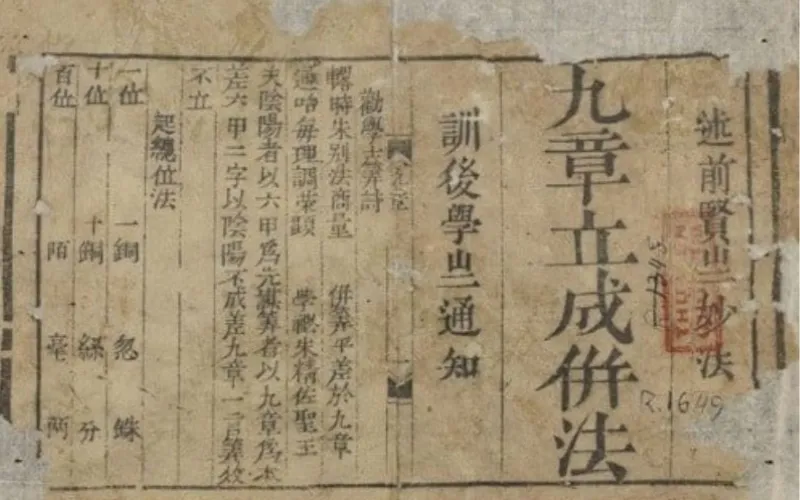 述前賢㞢妙法
九章立成併法
訓後學㞢通知
九章
一
勸學筭詩
時朱別法商量 併筭平差於九章
通每理調 學朱精佐聖王
夫陰陽者以六甲爲先筭者以九章爲本
差六甲二字以陰陽不成差九章一二筭
不立
起總位法
一位 一銅 忽 銖
十位 十銅 絲 分
百位 陌 毫 両
R.1649